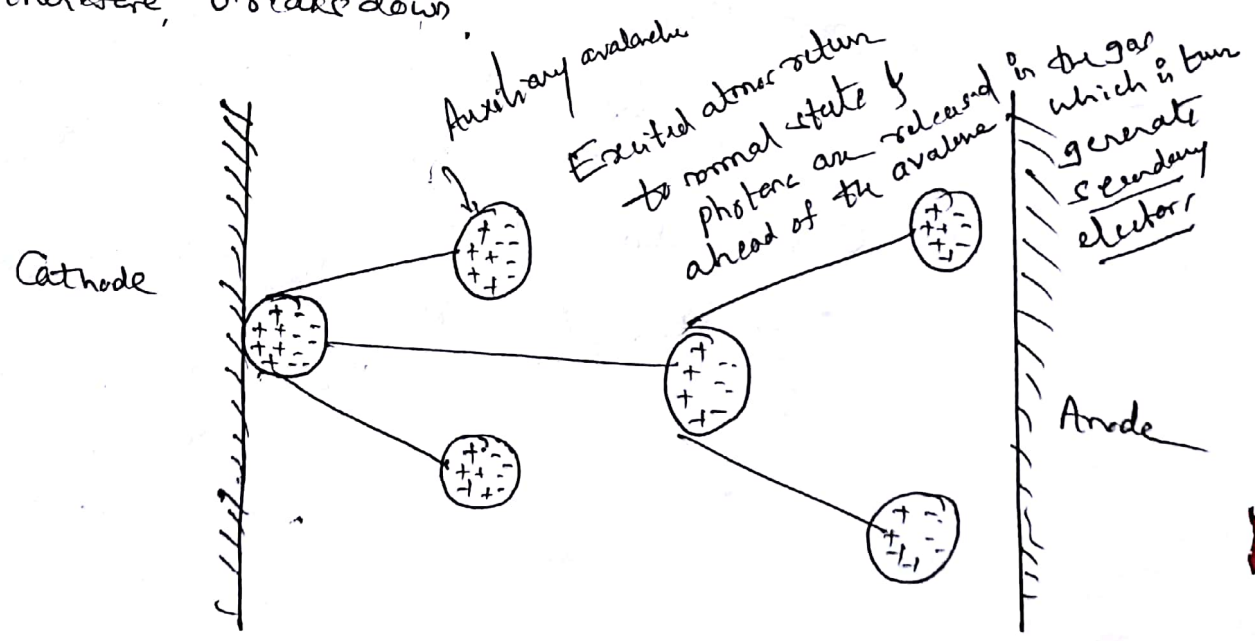 breaks down.
Auxiliary avalanche
Excited atoms return
to normal state &
photons are released in the gas
ahead of the avalanche which in turn
generate
secondary
electors
Cathode
Anode